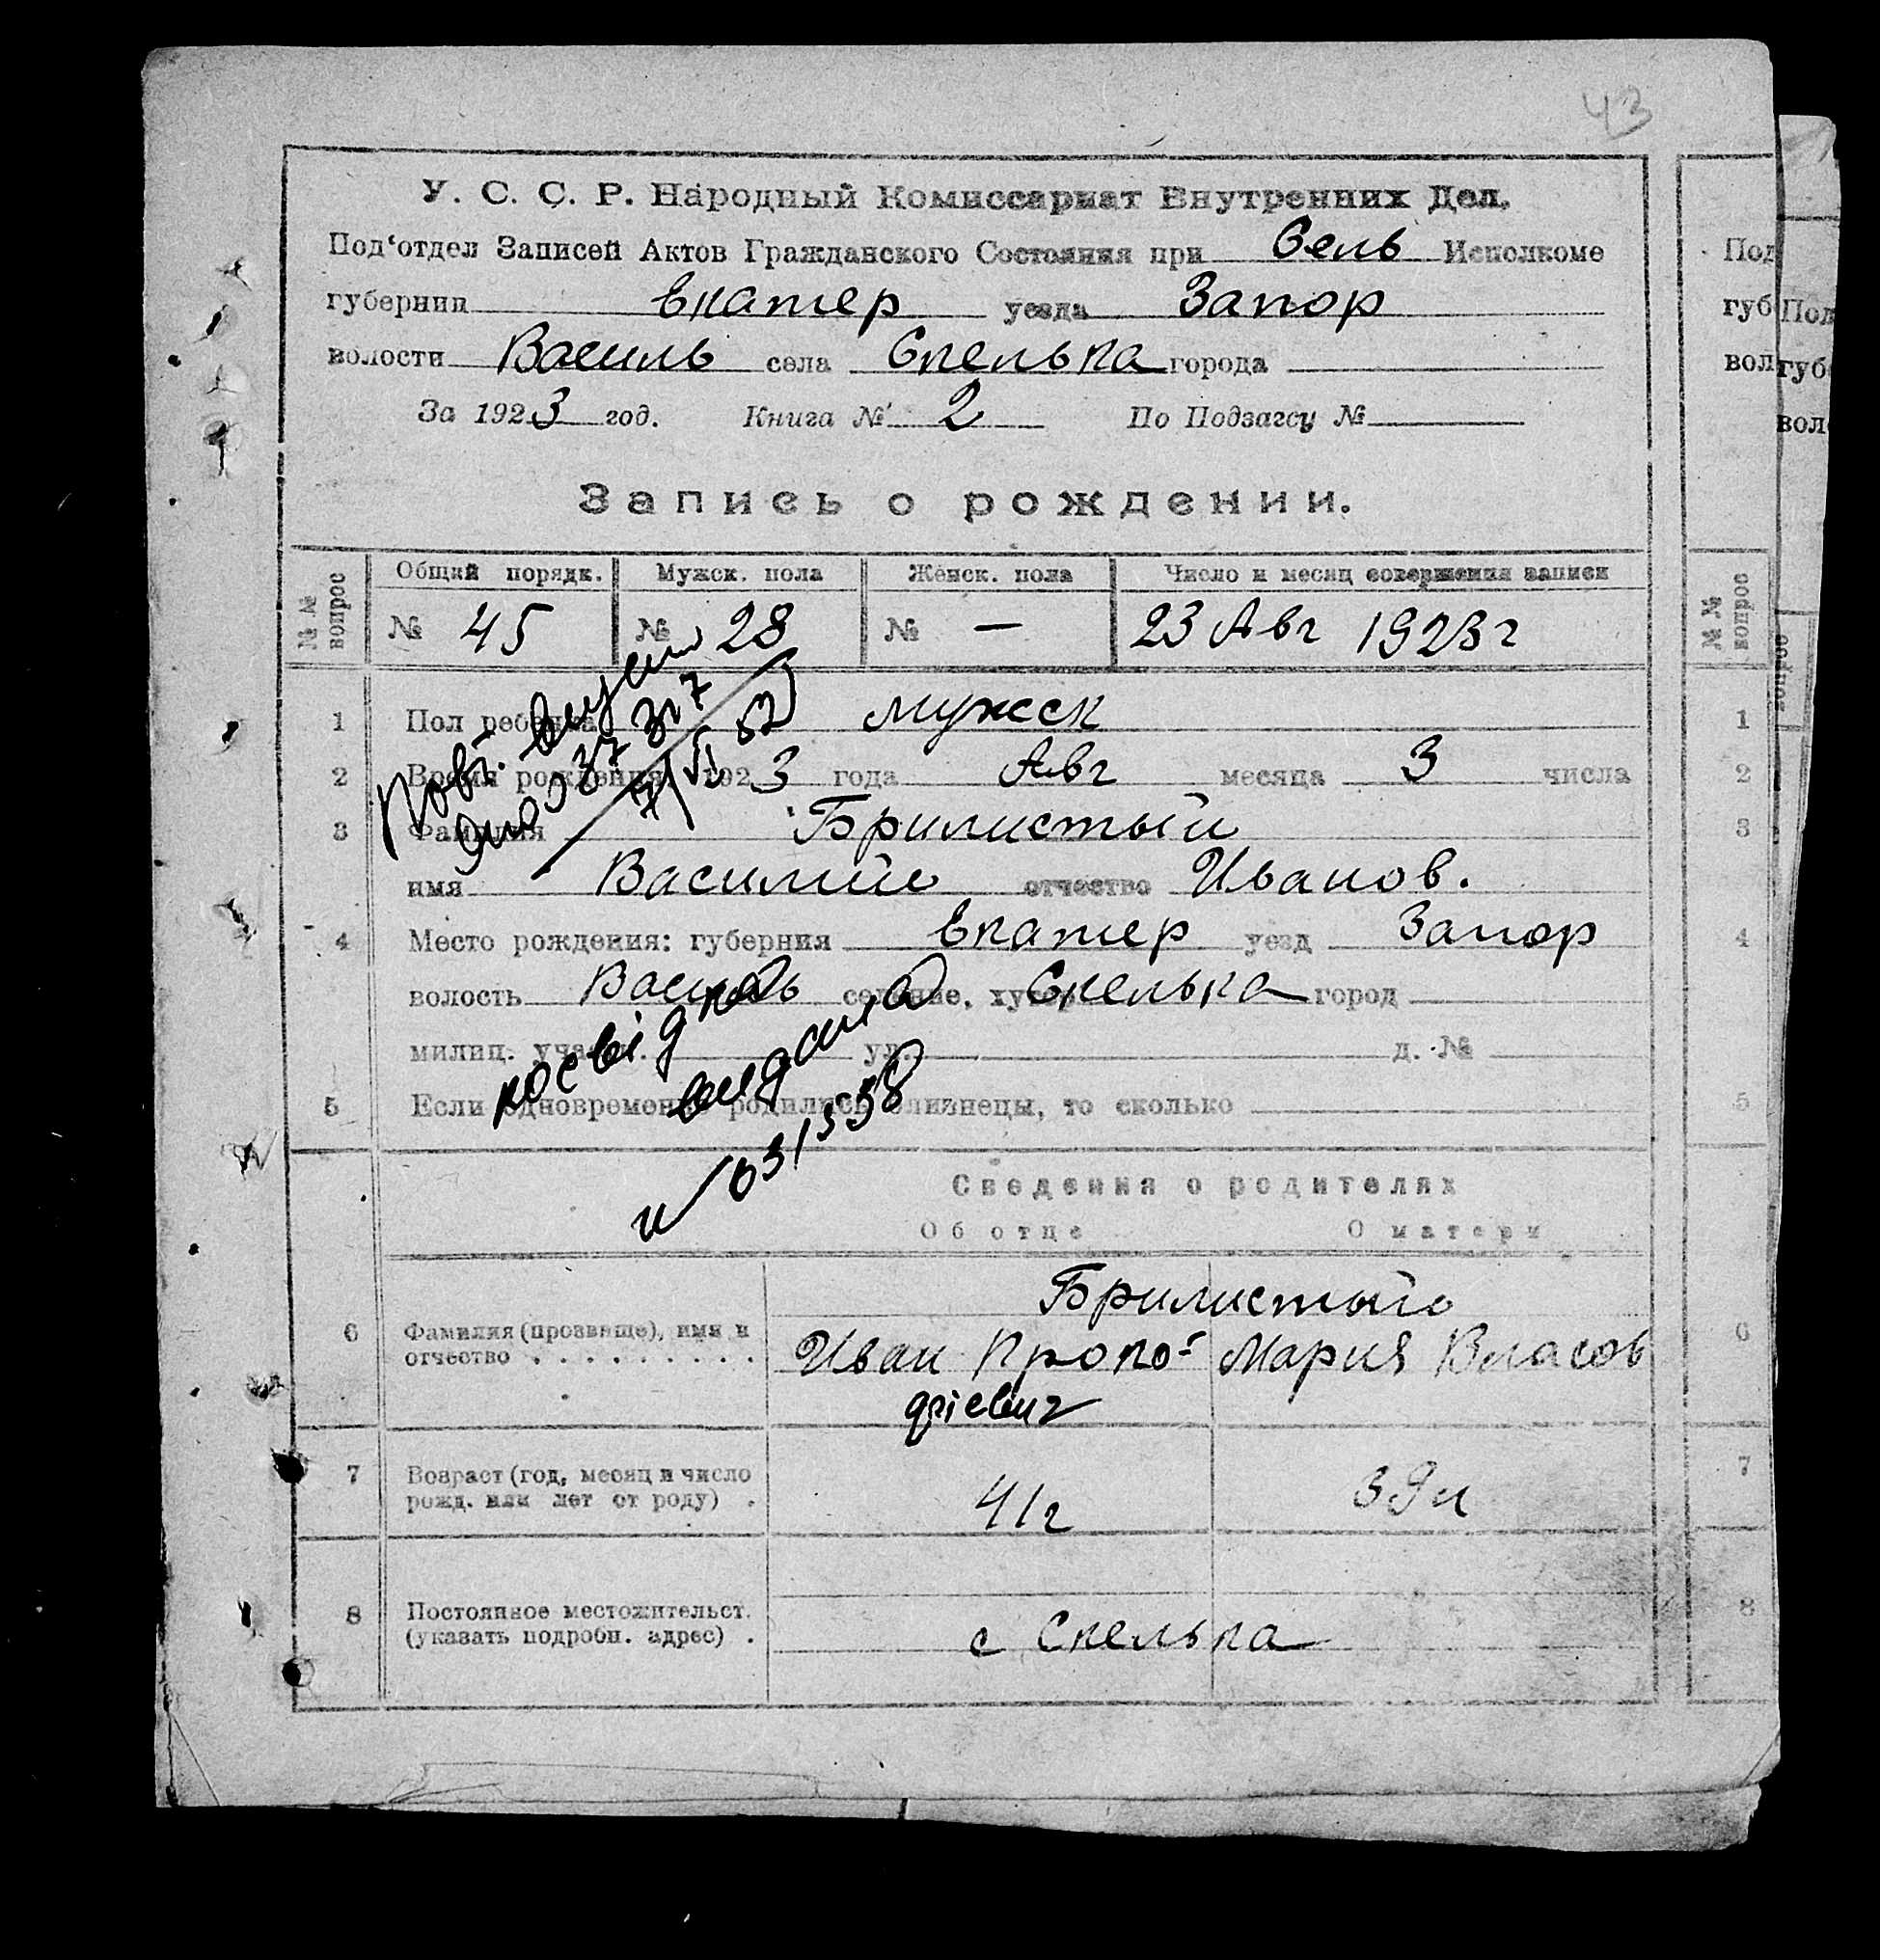 43
У. С. С. Р. Народный Комиссариат Внутренних Дел.
Под'отдел Записей Актов Гражданского Состояния при Сель Исполкоме
губернии Екатер уезда Запор
волости Василь села Скелька города
За 1923 год. Книга № 2 По Подзагсу №
Запись о рождении.
№№ вопрос
Общий порядк. Мужск. пола Женск. пола Число и месяц совершения записи
№ 45 № 28 № — 23 Авг 1923 г
1 Пол ребенка мужск
2 Время рождения 1923 года Авг месяца 3 числа
3 Фамилия Брилистый
имя Василий отчество Иванов.
4 Место рождения: губерния Екатер уезд Запор
волость Василь селение, хутор Скелька город
милиц. участ. ул. д. №
5 Если одновременно родились близнецы, то сколько
Повт.
посвідка
видана
031558
Сведения о родителях
Об отце О матери
Брилистый
6 Фамилия (прозвище), имя и отчество Иван Проко- Мария Власов
7 Возраст (год, месяц и число рожд. или лет от роду) 41 г 39 л
8 Постоянное местожительст. (указать подробн. адрес) с Скелька
Под
губ
вол
№№ вопрос
1
2
3
4
5
6
7
8
Под
губ
вол
вопрос